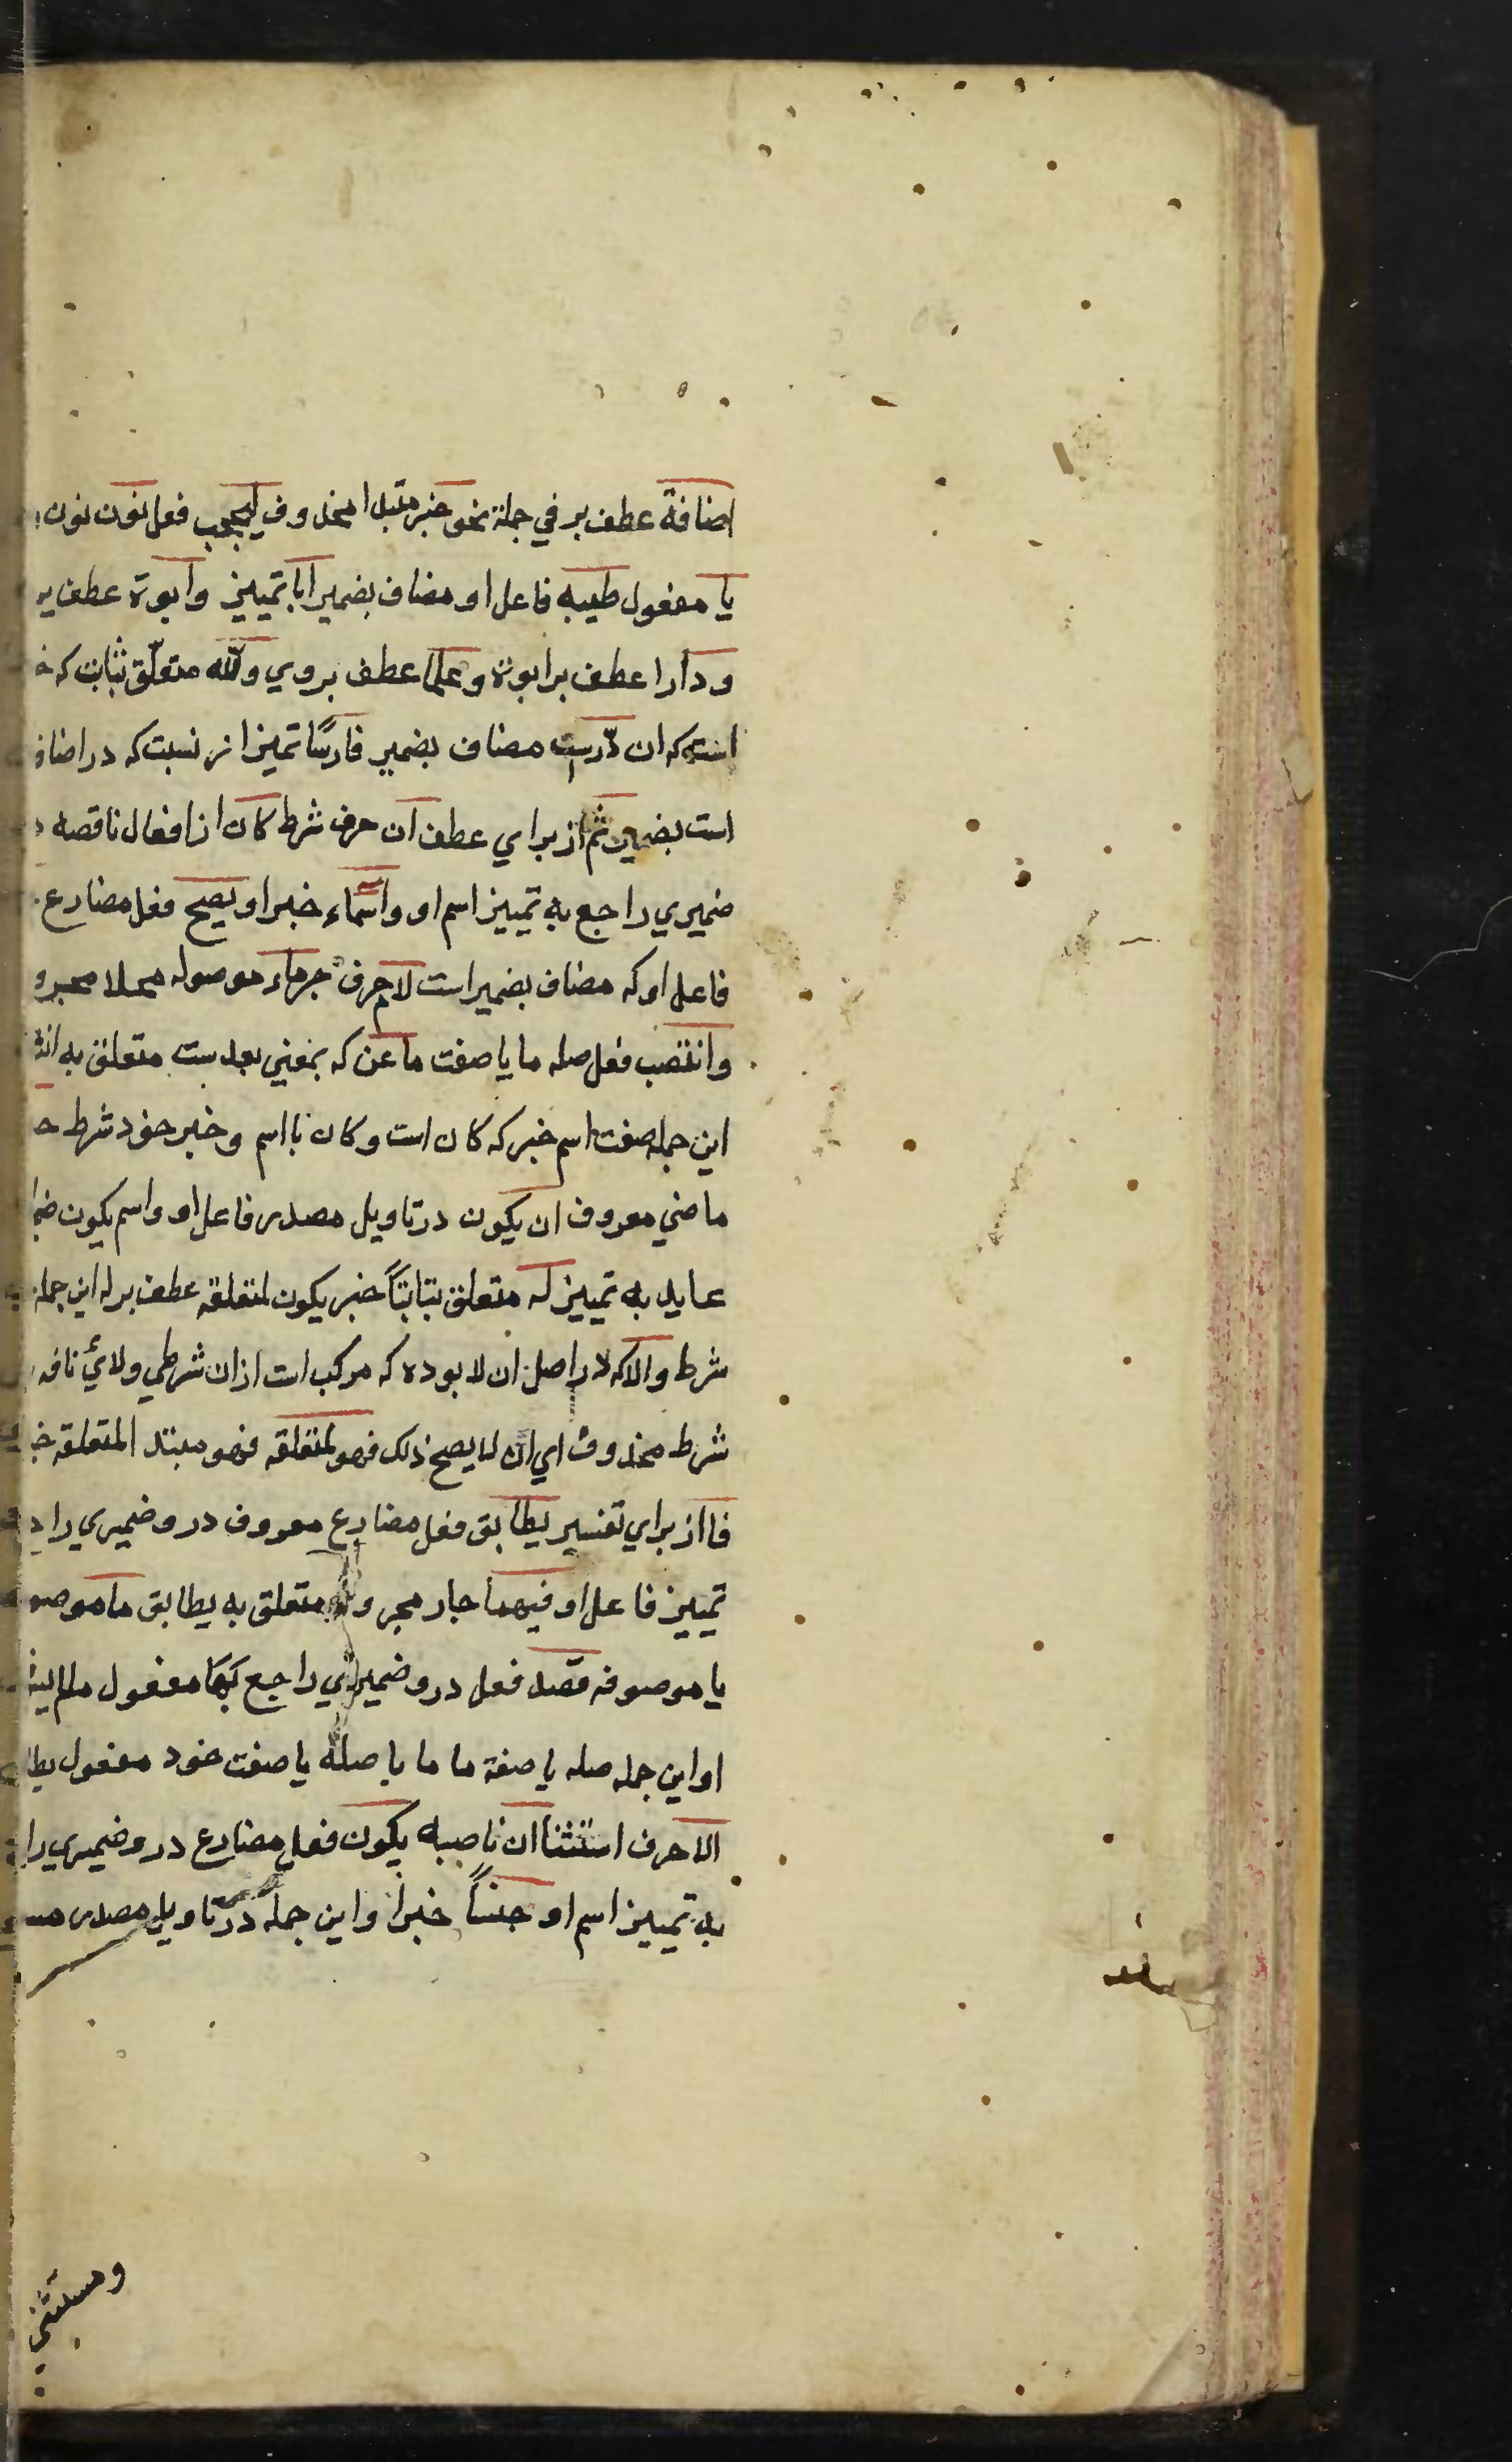 اضافة عطف بر في جملة نحو خبر مبتدا محذوف يعجب فعل نون نون
يا مفعول طيبه فاعل او مضاف بضمير ابا تمييز وابوة عطف بر
ودارا عطف بر ابوة وعلما عطف بروي ولله متعلق بثابت كه
است كه ان درست مضاف بضمير فارسًا تميز از نسبت كه در اضافة
است بضمير ثم از براي عطف ان حرف شرط كان از افعال ناقصه
ضميري راجع به تمييز اسم او واسماء خبر او يصح فعل مضارع
فاعل او كه مضاف بضمير است لام حرف جر ماء موصوله محلا مجرو
وانتصب فعل صله ما يا صفت ما عن كه بمعني بعدست متعلق به
اين جمله صفت اسم خبر كه كان است وكان با اسم وخبر خود شرط
ماضي معروف ان يكون در تاويل مصدر فاعل او واسم يكون
عايد به تمييز له متعلق بثابتاً خبر يكون لمتعلقه عطف بر له اين جمله
شرط والا كه در اصل ان لا بوده كه مركب است از ان شرطي ولائ نافه
شرط محذوف اي ان لا يصح ذلك فهو لمتعلقه فهو مبتدا لمتعلقه
فا از براي تفسير يطابق فعل مضارع معروف درو ضميري را
تمييز فاعل او فيهما جار مجرور متعلق به يطابق ما موصو
يا موصوفه قصد فعل درو ضميري راجع بهما مفعول مالم
او اين جمله صله يا صفة ما ما با صله يا صفت خود مفعول
الا حرف استثنا ان ناصبه يكون فعل مضارع درو ضميري را
به تمييز اسم او جنساً خبر او اين جمله در تاويل مصدر
ومستثنى